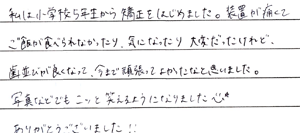 私は小学校5年生から矯正をはじめました。装置が痛くて
ご飯が食べられなかったり、気になったり大変だったけれど、
歯並びが良くなって、今まで頑張ってよかったなと思いました。
写真などでもニッと笑えるようになりました
ありがとうございました!!